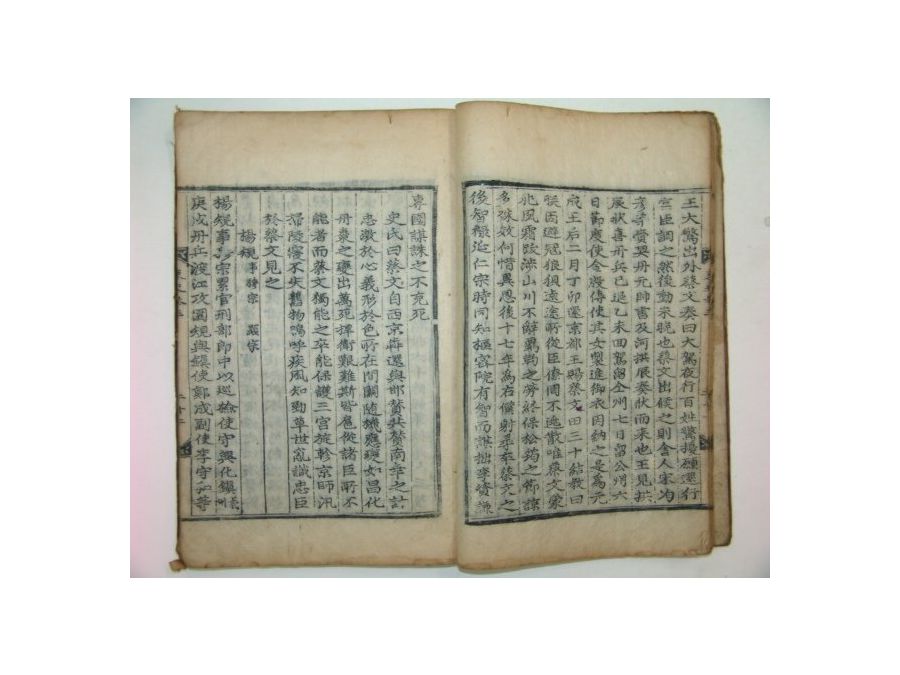 王大驚出外蔡文奏曰大駕夜行百姓驚擾願還行
宮臣調之然後動未晩也蔡文出候之則舍人宋均
彦等賫契丹元帥書及河拱辰奏狀而來也王見拱
辰狀喜丹兵已退乙未回駕留全州七日留公州六
日節度使金殷傅使其女製進御衣因納之是爲元
成王后二月丁卯還京都王賜蔡文田三十結敎曰
朕因避寇狼狽遠途所從臣僚罔不逃散唯蔡文蒙
犯風霜跋涉山川不辭羈靮之勞終保松筠之節諒
多殊效何惜異恩後十七年爲右僕射卒蔡文之
後智祿延仁宗時同知樞密院有智而謀拙李資謙
專國謀誅之不克死
史氏曰蔡文自西京奔還與邯賛共賛南幸之計
忠激於心義形於色所在間關隨機應變如昌化
丹棗之變出萬死捍衛艱難斯皆扈從諸臣所不
能者而蔡文獨能之卒能保護三宮旋軫京師汛
掃陵寢不失舊物嗚呼疾風知勁草世亂識忠臣
於蔡文見之
楊規
楊規事穆宗累官刑部郎中以巡檢使守興化鎮
庚戌丹兵渡江攻圍規與鎮使鄭成副使李守和等